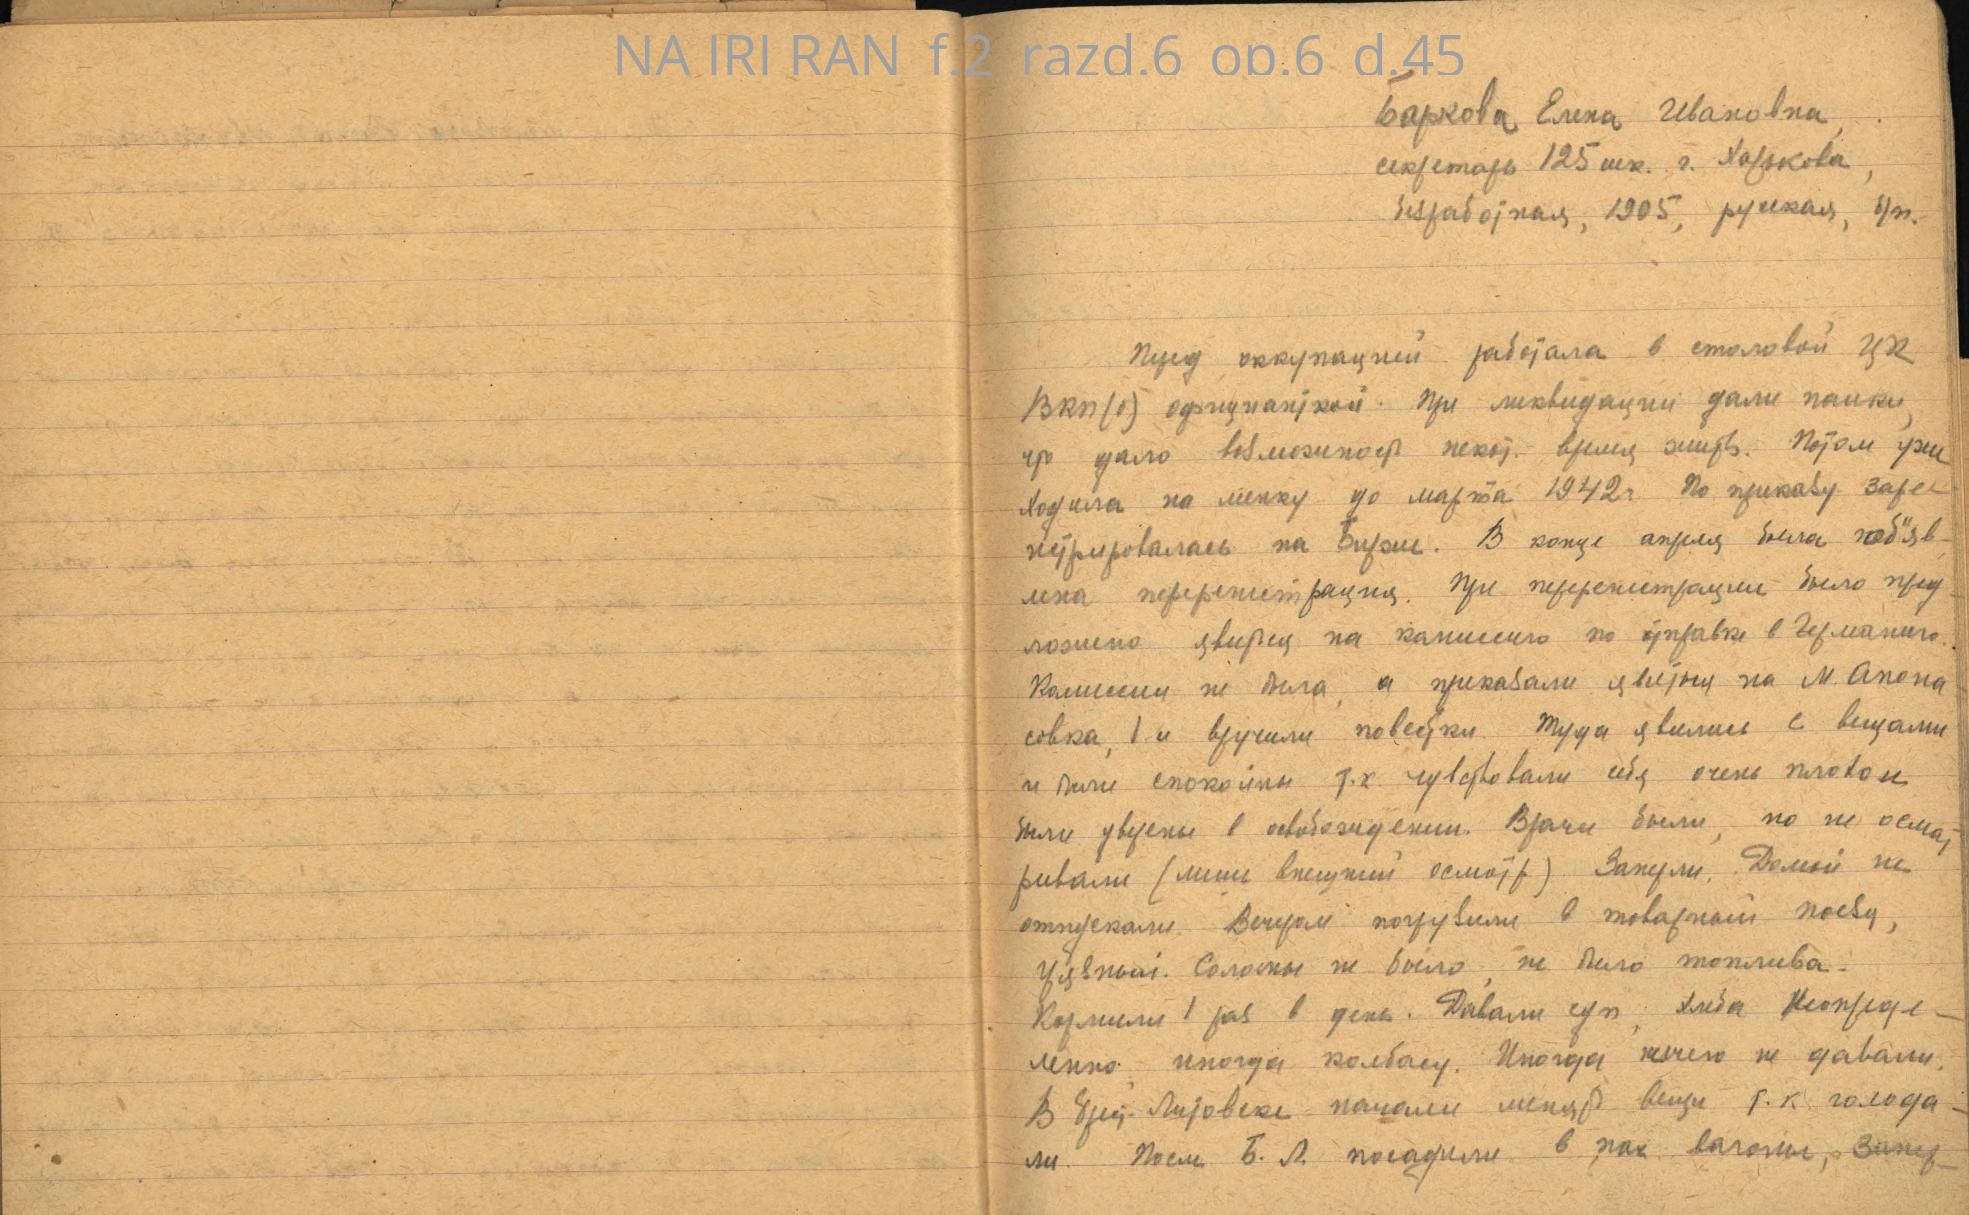 NA IRI RAN f.2 razd.6 op.6 d.45
Баркова Елена Ивановна,
секретарь 125 шк. г. Харькова,
1905, русская,
Перед оккупацией работала в столовой ЦК
ВКП(б) официанткой. При ликвидации дали пайки,
что дало возможность некот. время жить. Потом уже
ходила на менку до марта 1942 г. По приказу заре-
гистрировалась на Бирже. В конце апреля была об"яв-
лена перерегистрация. При перерегистрации было пред-
ложено явиться на комиссию по отправке в Германию.
Комиссии не было, а приказали явиться на М. Апона
совка, 1 и вручили повестки. Туда явились с вещами
и были спокойны т.к. чувствовали себя очень плохо и
были уверены в освобождении. Врачи были, но не осмат
ривали (лишь внешний осмотр). Заперли. Домой не
отпускали. Вечером погрузили в товарный поезд,
грязный. Соломы не было, не было топлива.
Кормили 1 раз в день. Давали суп, хлеба неопреде-
ленно, иногда колбасу. Иногда ничего не давали.
В Брест-Литовске начали менять вещи т.к. голода-
ли. После Б.Л. посадили в вагоны, запер-